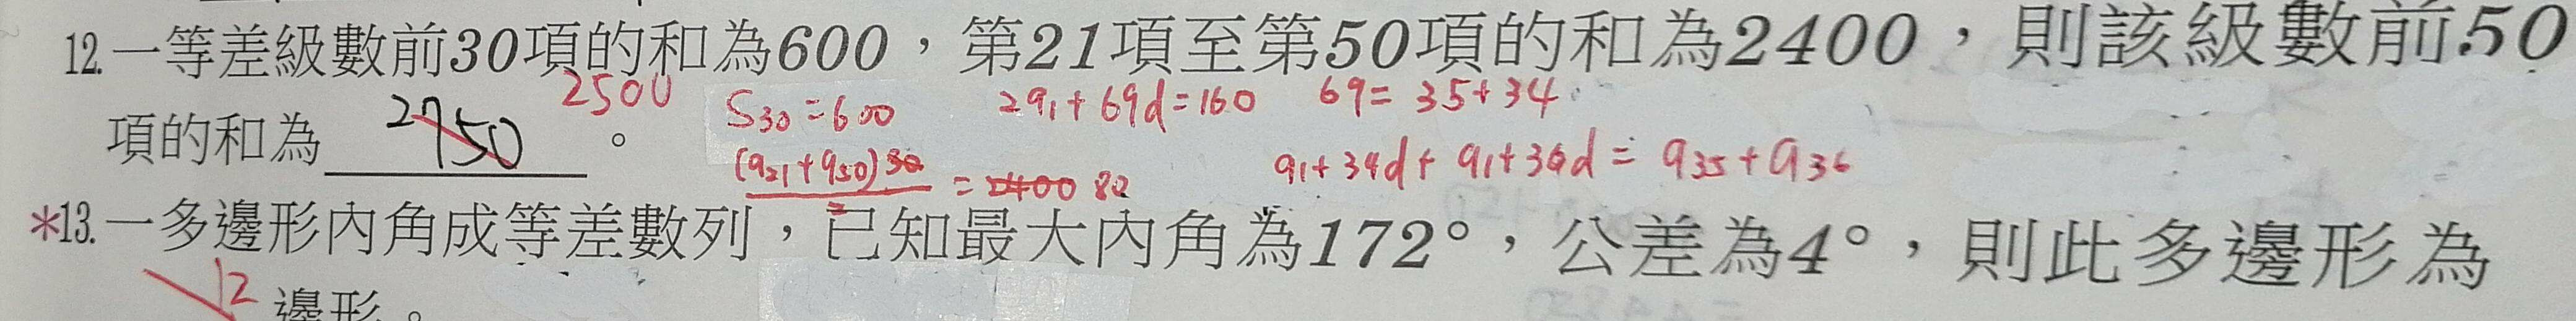 12.一等差級數前30項的和為600，第21項至第50項的和為2400，則該級數前50
2500 S30=600 2a1+69d=160 69=35+34
項的和為 2750 。
(a21+a50)30/2 = 2400 80 a1+34d+a1+36d=a35+a36
*13.一多邊形內角成等差數列，已知最大內角為172°，公差為4°，則此多邊形為
12 邊形。